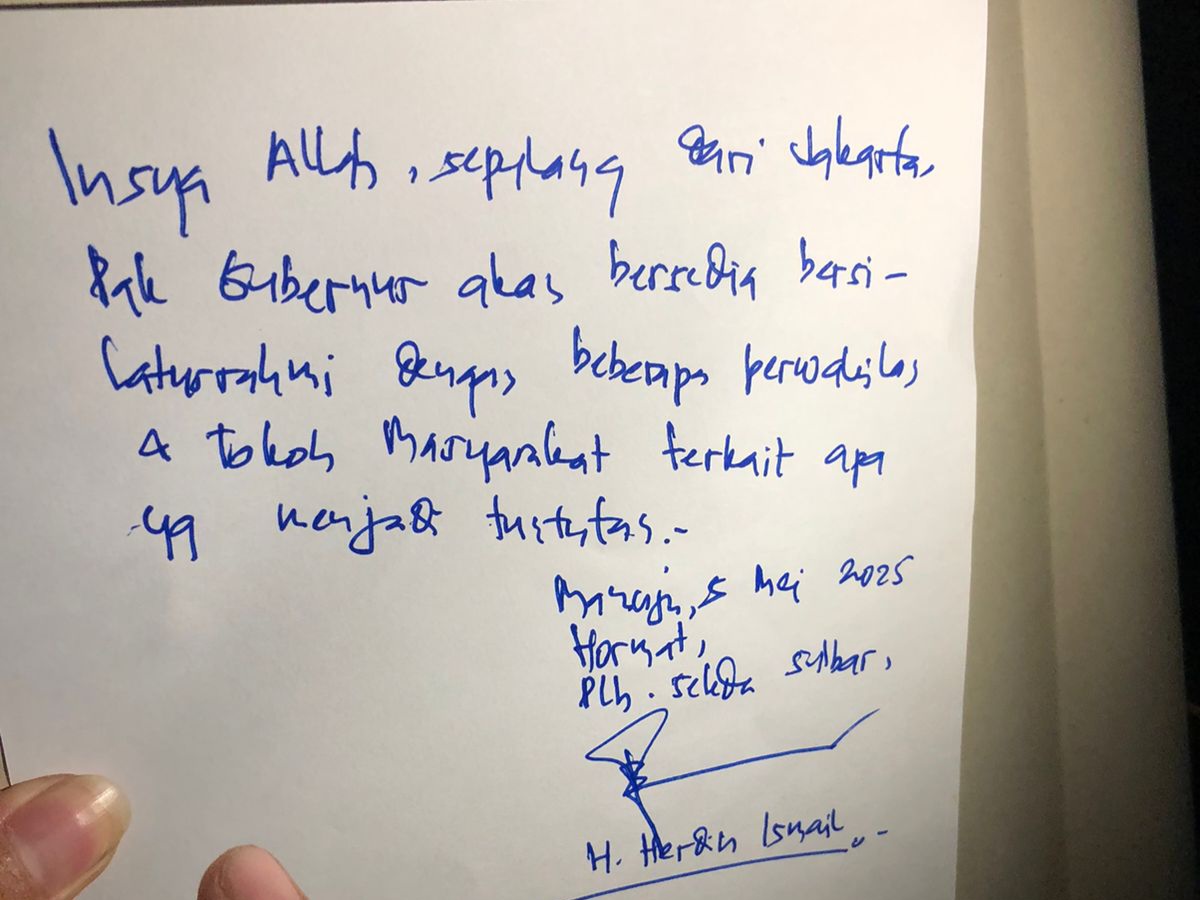 Insya Allah, sepulang dari Jakarta,
Pak Gubernur akan bersedia bersi-
laturrahmi dengan beberapa perwakilan
& tokoh Masyarakat terkait apa
yg menjadi tuntutan.-
Mamuju, 5 Mei 2025
Hormat,
Plh. Sekda Sulbar,
H. Herdin Ismail